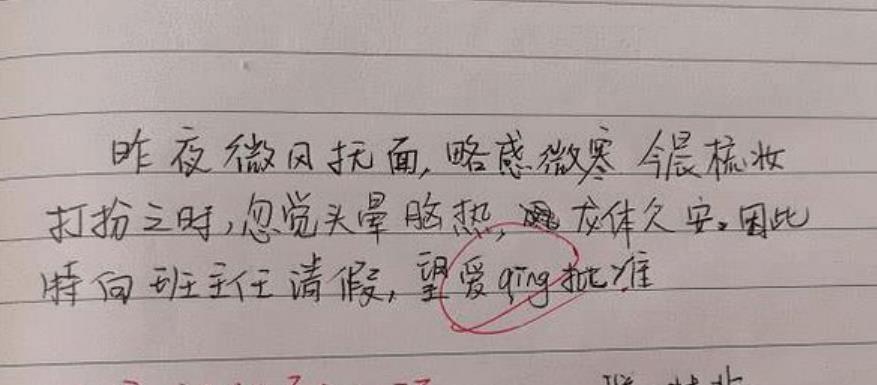 昨夜微风抚面,略感微寒 今晨梳妆
打扮之时,忽觉头晕脑热, 龙体欠安。因此
特向班主任请假,望爱qing批准